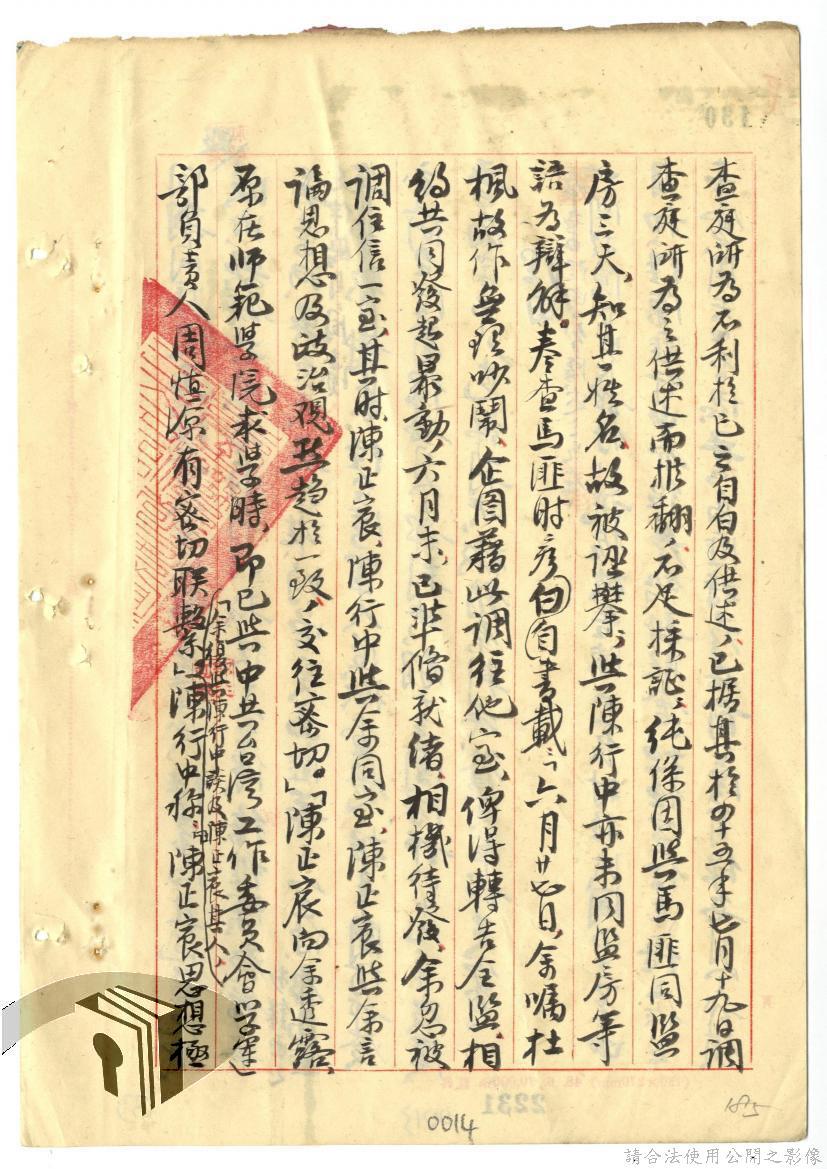 查庭所為不利於己之自白及供述，已據其於四十五年七月十九日調
查庭所為之供述而推翻，不足採証，純係因與馬匪同監
房三天，知其姓名，故被誣攀，與陳行中亦未同監房等
語為辯解。奉查馬匪时彥白自書載：「六月廿七日，余囑杜
楓故作無理吵鬧，企图藉此調往他室，俾得轉告全監，相
約共同發起暴動，六月末，已準備就緒，相機待發，余忽被
調住信一室，其时，陳正宸、陳行中與余同室，陳正宸與余言
論思想及政治觀點趋於一致，交往密切。」「陳正宸向余透露，
原在师範学院求学時，即已與中共台湾工作委员會学運
部負責人周慎源有密切联繫」「陳行中称：陳正宸思想極
「余曾與陳行中談及陳正宸其人，
0014
2231
130
185
請合法使用公開之影像